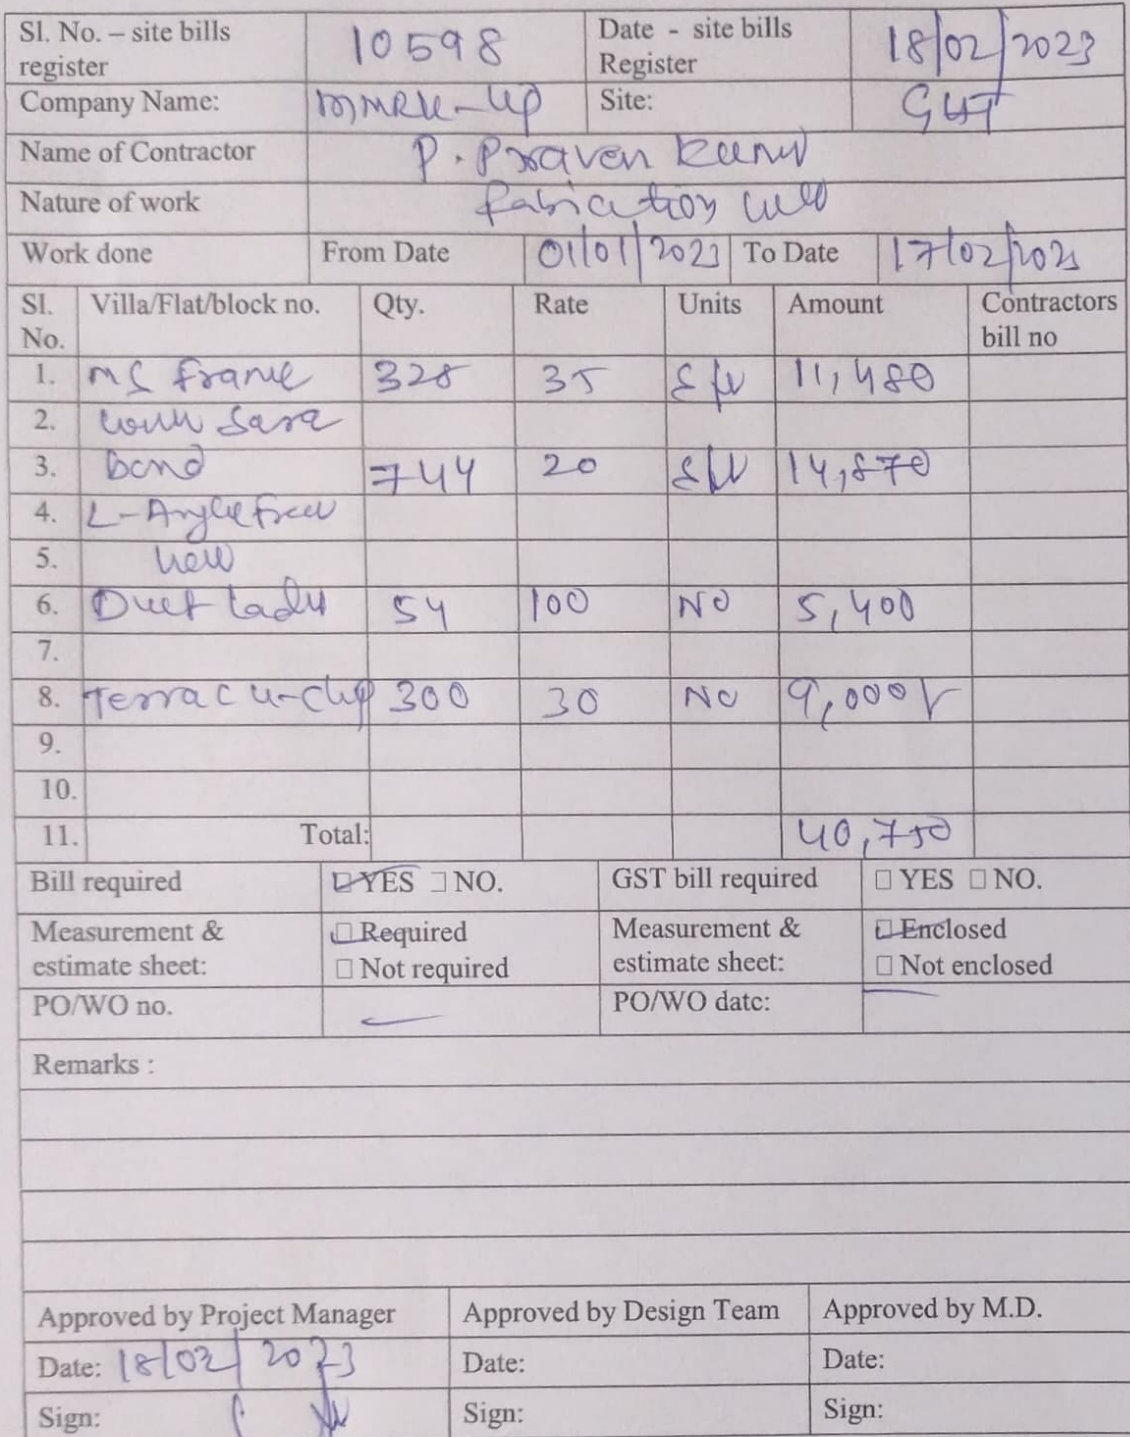 Sl. No. – site bills register 10598 Date - site bills Register 18/02/2023
Company Name: Site: GHT
Name of Contractor P. Praven
Nature of work
Work done From Date 01/01/2023 To Date 17/02/202
Sl. No. Villa/Flat/block no. Qty. Rate Units Amount Contractors bill no
1. MS frame 328 35 11,480
2.
3. 744 20 14,870
4. L-Angle
5.
6. Duct 54 100 NO 5,400
7.
8. Terrac U-Clip 300 30 NO 9,000
9.
10.
11. Total: 40,750
Bill required ☑ YES ☐ NO. GST bill required ☐ YES ☐ NO.
Measurement & estimate sheet: ☑ Required ☐ Not required Measurement & estimate sheet: ☑ Enclosed ☐ Not enclosed
PO/WO no. PO/WO date:
Remarks :
Approved by Project Manager Approved by Design Team Approved by M.D.
Date: 18/02/2023 Date: Date:
Sign: Sign: Sign: